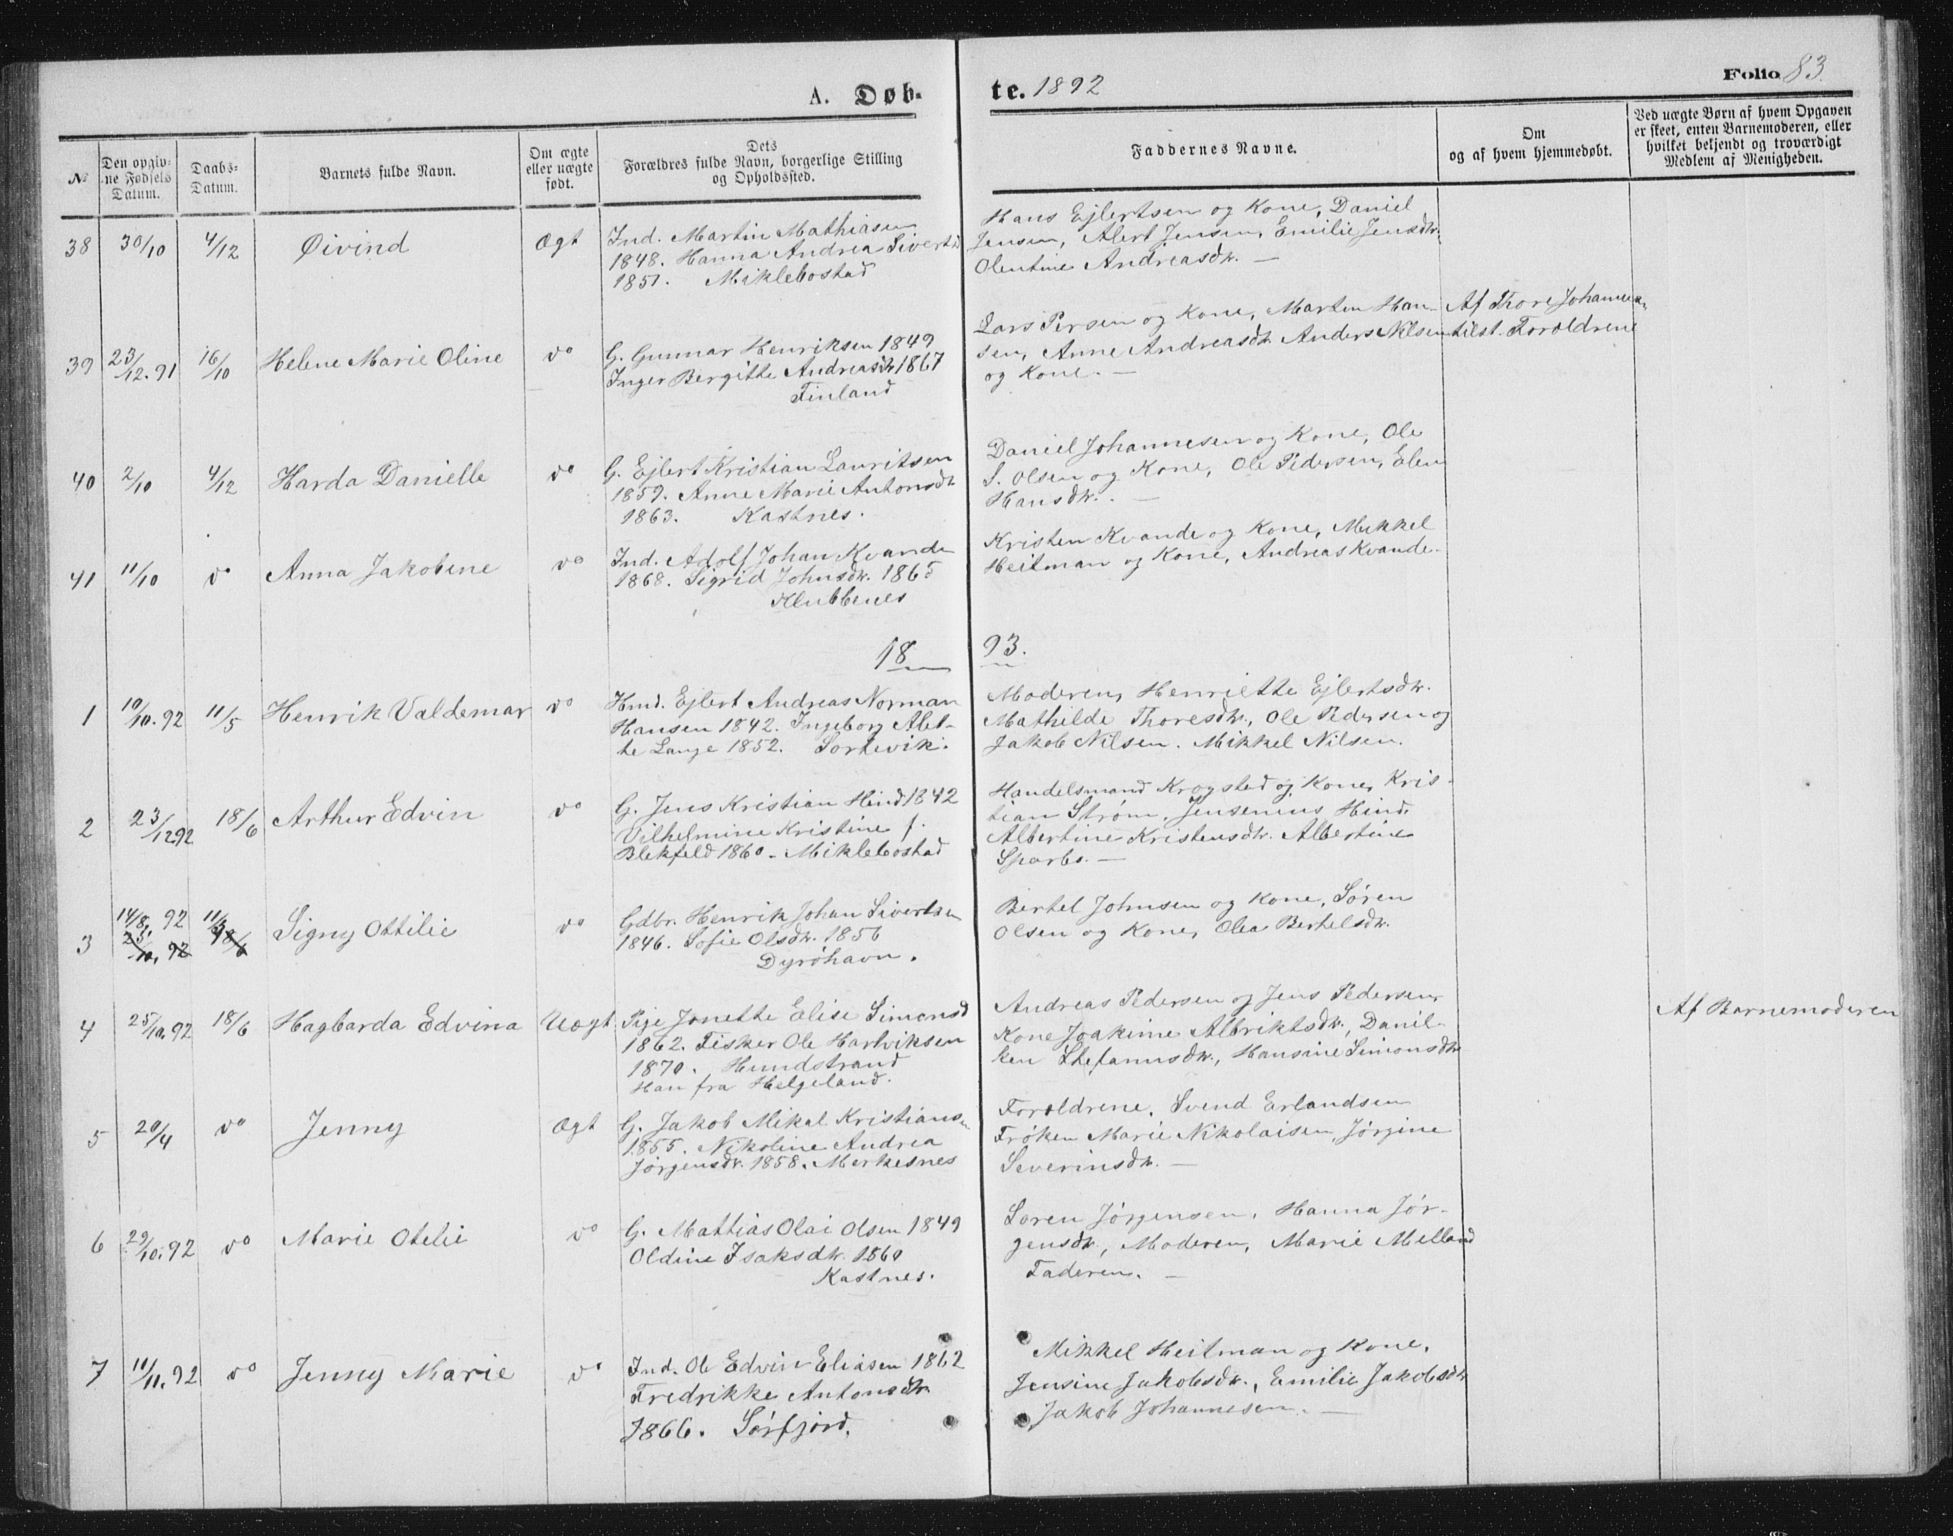 A. Døb- te. 1892
Folio 83.
№
Den opgiv-
ne Fødsels
Datum.
Daabs-
Datum.
Barnets fulde Navn.
Om ægte
eller uægte
født.
Dets
Forældres fulde Navn, borgerlige Stilling
og Opholdssted.
Faddernes Navne.
Om
og af hvem hjemmedøbt.
Ved uægte Børn af hvem Opgaven
er skeet, enten Barnemoderen, eller
hvilket bekjendt og troværdigt
Medlem af Menigheden.
38 30/10 4/12 Øivind Ægt
Ind. Martin Mathiasen
1848. Hanna Andrea Sivertsd
1851. Miklebostad
Hans Ejlertsen og Kone, Daniel
Jensen, Alert Jensen, Emilie Jensdtr.
Olentine Andreasdtr. —
39 23/12.91 16/10 Helene Marie Oline do
G. Gunnar Henriksen 1849
Inger Bergitte Andreasdtr 1867
Finland
Lars Persen og Kone, Marten Han-
sen, Anne Andreasdtr. Anders Nilsen
og Kone. —
Af Thore Johannesen
tilst. Forældrene
40 2/10 4/12 Harda Danielle do
G. Ejlert Kristian Lauritsen
1859. Anne Marie Antonsdtr
1863. Kastnes.
Daniel Johannesen og Kone, Ole
S. Olsen og Kone, Ole Pedersen, Elen
Hansdtr. —
41 11/10 do Anna Jakobine do
Ind. Adolf Johan Kvande
1868. Sigrid Johnsdtr. 1865
Klubbenes
Kristen Kvande og Kone, Mikkel
Heitman og Kone, Andreas Kvande.
18 93.
1 10/10.92 11/5 Henrik Valdemar do
Hmd. Ejlert Andreas Norman
Hansen 1842. Ingeborg Alet-
te Lange 1852. Sortevik.
Moderen, Henriette Ejlertsdtr.
Mathilde Thoresdtr., Ole Pedersen og
Jakob Nilsen. Mikkel Nilsen.
2 23/12 92 18/6 Arthur Edvin do
G. Jens Kristian Hind 1842
Vilhelmine Kristine f.
Blekfeld 1860. Miklebostad
Handelsmand Krogsted og Kone, Kris-
tian Strøm, Jensenius Hind,
Albertine Kristensdtr. Albertine
Sparbo. —
3 14/8. 92 11/3 Signy Ottilie do
23/10. 92 18/6
Gdbr. Henrik Johan Sivertsen
1846. Sofie Olsdtr. 1856
Dyröhavn.
Bertel Johnsen og Kone, Sören
Olsen og Kone, Olea Bertelsdtr.
4 25/10.92 18/6 Hagbarda Edvina Uægt
Pige Jonette Elise Simonsd
1862. Fisker Ole Hartviksen
1870. Hundstrand
Han fra Helgeland.
Andreas Pedersen og Jens Pedersen,
Kone Joakime Albriktsdtr., Danil-
ken Stefanusdtr., Hansine Simonsdtr
Af Barnemoderen
5 20/4 do Jenny Ægt
G. Jakob Mikal Kristiansen
1855. Nikoline Andrea
Jørgensdtr. 1858. Merkesnes
Forældrene, Svend Erlandsen
Frøken Marie Nikolaisen, Jørgine
Severinsdtr. —
6 29/10.92 do Marie Otelie do
G. Mattias Olai Olsen 1849
Oldine Isaksdtr. 1860
Kastnes.
Sören Jørgensen, Hanna Jør-
gensdtr, Moderen, Marie Melland
Faderen. —
7 11/11.92 do Jenny Marie do
Ind. Ole Edvin Eliasen 1862
Fredrikke Antonsdtr
1866. Sørfjord.
Mikkel Heitman og Kone,
Jensine Jakobsdtr., Emilie Jakobsdtr
Jakob Johannesen. —